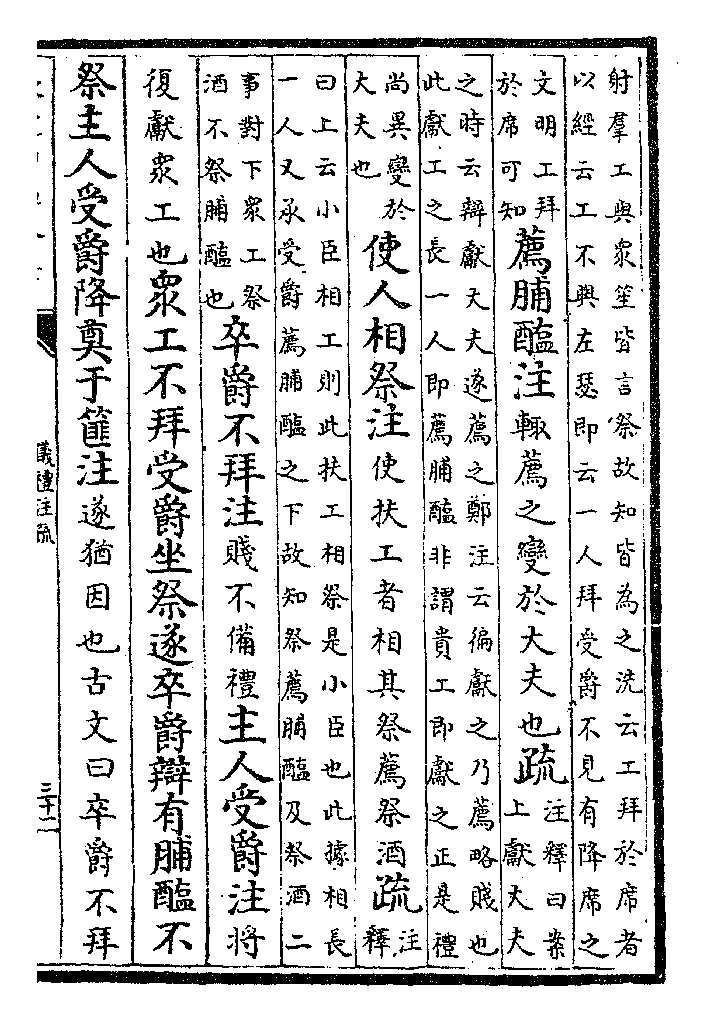 射羣工與眾笙皆言祭故知皆為之洗云工拜於席者
以經云工不興左瑟即云一人拜受爵不見有降席之
文明工拜
於席可知
薦脯醢注輙薦之變於大夫也疏
注釋曰案
上獻大夫
之時云辯獻大夫遂薦之鄭注云徧獻之乃薦略賤也
此獻工之長一人即薦脯醢非謂貴工即獻之正是禮
尚異變於
大夫也
使人相祭注使扶工者相其祭薦祭酒疏
注
釋
曰上云小臣相工則此扶工相祭是小臣也此據相長
一人又承受爵薦脯醢之下故知祭薦脯醢及祭酒二
事對下眾工祭
酒不祭脯醢也
卒爵不拜注賤不備禮主人受爵注將
復獻眾工也眾工不拜受爵坐祭遂卒爵辯有脯醢不
祭主人受爵降奠于篚注遂猶因也古文曰卒爵不拜
儀禮注疏
三十二